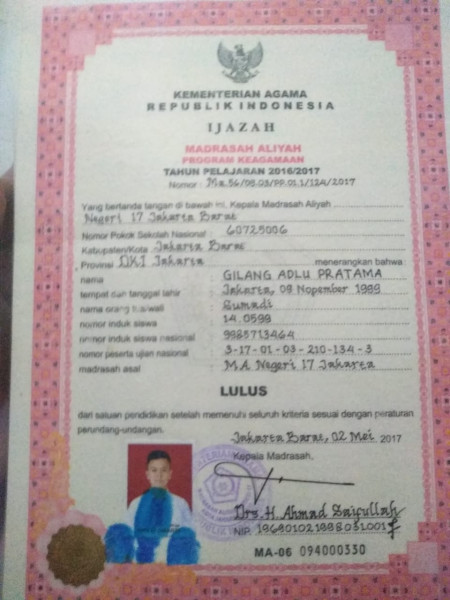 KEMENTERIAN AGAMA
REPUBLIK INDONESIA
IJAZAH
MADRASAH ALIYAH
PROGRAM KEAGAMAAN
TAHUN PELAJARAN 2016/2017
Nomor : Ma.56/09.03/PP.01.1/124/2017
Yang bertanda tangan di bawah ini, Kepala Madrasah Aliyah
Negeri 17 Jakarta Barat
Nomor Pokok Sekolah Nasional : 60725006
Kabupaten/Kota Jakarta Barat
Provinsi DKI Jakarta menerangkan bahwa :
nama : GILANG ADLU PRATAMA
tempat dan tanggal lahir : Jakarta, 09 Nopember 1999
nama orang tua/wali : Sumadi
nomor induk siswa : 14.0599
nomor induk siswa nasional : 9985713464
nomor peserta ujian nasional : 3-17-01-03-210-134-3
madrasah asal : MA Negeri 17 Jakarta
LULUS
dari satuan pendidikan setelah memenuhi seluruh kriteria sesuai dengan peraturan
perundang-undangan.
Jakarta Barat, 02 Mei 2017
Kepala Madrasah,
Drs. H. Ahmad Saifullah
NIP. 196901021998031001
MA-06 094000330